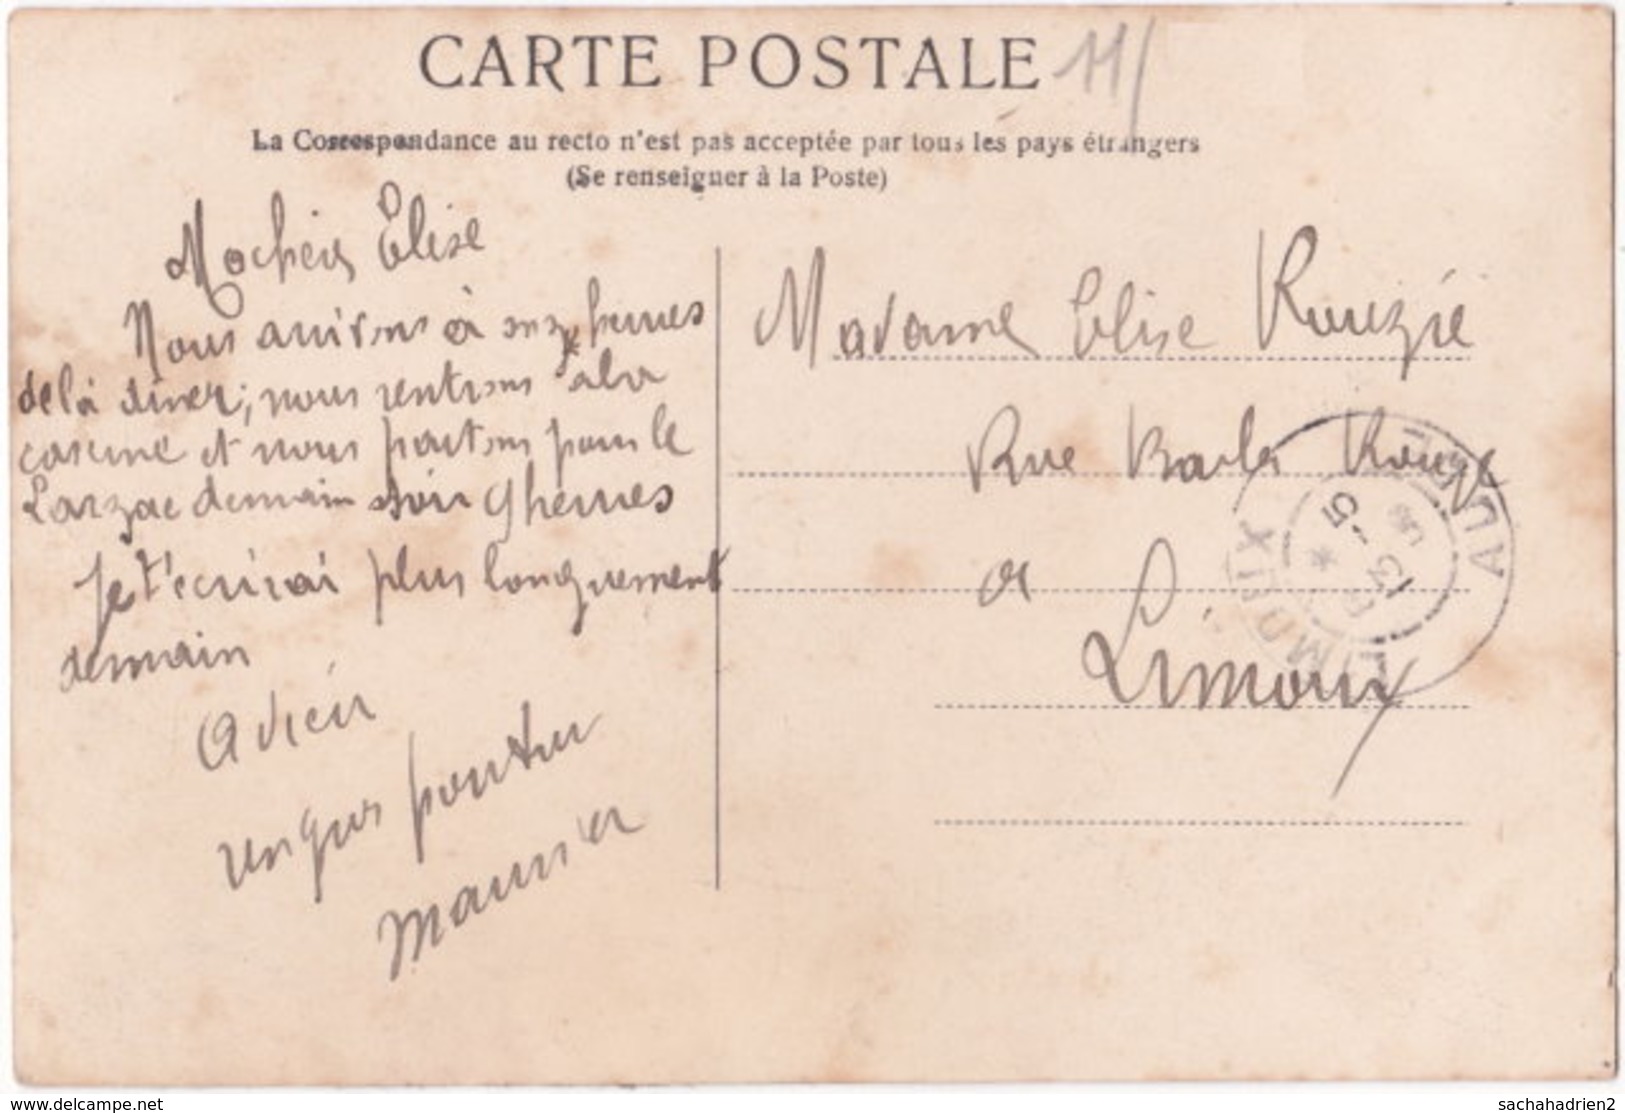 CARTE POSTALE 11/
La Correspondance au recto n'est pas acceptée par tous les pays étrangers
(Se renseigner à la Poste)
Mocheir Élise
Nous arrivons à onze heures
de là diner; nous rentrons a la
caserne et nous partons pour le
Larzac demain soir 9 heures
Je t'ecrirai plus longuement
demain
Adieu
un gros
Maurier
Madame Elise Rouzié
Rue Barbe Rouge
a
Limoux
LIMOUX
AUDE
5 *
13 -5
www.delcampe.net
sachahadrien2